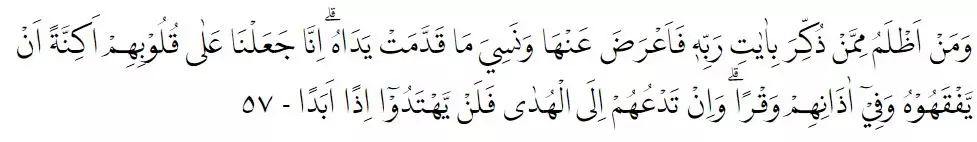 وَمَنْ اَظْلَمُ مِمَّنْ ذُكِّرَ بِاٰيٰتِ رَبِّهٖ فَاَعْرَضَ عَنْهَا وَنَسِيَ مَا قَدَّمَتْ يَدَاهُۗ اِنَّا جَعَلْنَا عَلٰى قُلُوْبِهِمْ اَكِنَّةً اَنْ
يَّفْقَهُوْهُ وَفِيْٓ اٰذَانِهِمْ وَقْرًاۗ وَاِنْ تَدْعُهُمْ اِلَى الْهُدٰى فَلَنْ يَّهْتَدُوْٓا اِذًا اَبَدًا - ٥٧